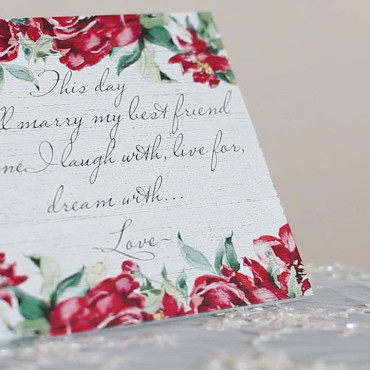 This day
ll marry my best friend
ne I laugh with, live for,
dream with...
Love~